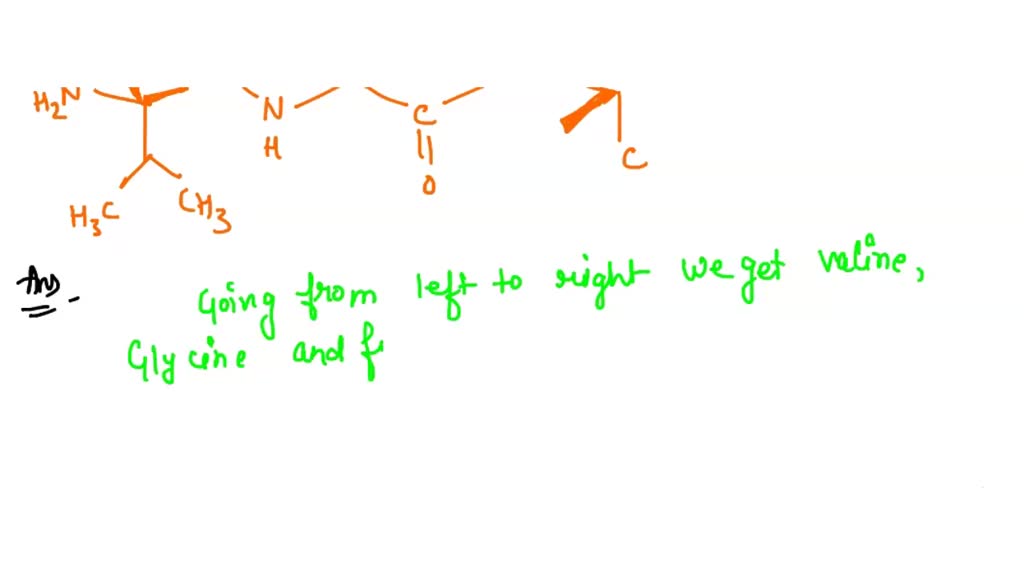 H₂N
N
H
C
O
C
H₃C
CH₃
Ans.
Going from left to right we get valine,
Glycine and f